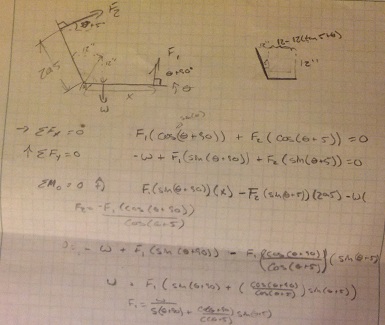 F₂
θ+5°
12"
F₁
θ+90°
θ
x
W
12-12(tan 5+θ)
12"
sin(θ)
→ ΣFx = 0   F₁(cos(θ+90)) + F₂(cos(θ+5)) = 0
↑ ΣFy = 0   -W + F₁(sin(θ+90)) + F₂(sin(θ+5)) = 0
ΣM₀ = 0   F₁(sin(θ+90))(x) - F₂(sin(θ+5))(20.5) - W(
F₂ = -F₁(cos(θ+90)) / cos(θ+5)
= W + F₁(sin(θ+90) - F₁(cos(θ+90) / cos(θ+5))(sin(θ+5)
W = F₁(sin(θ+90) + (cos(θ+90) / cos(θ+5)) sin(θ+5))
F₁ =